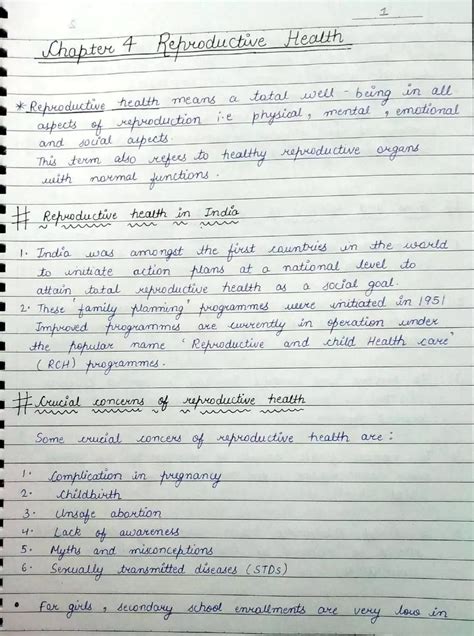 1
Chapter 4 Reproductive Health
* Reproductive health means a total well-being in all
aspects of reproduction i.e physical, mental, emotional
and social aspects.
This term also refers to healthy reproductive organs
with normal functions.
# Reproductive health in India
1. India was amongst the first countries in the world
to initiate action plans at a national level to
attain total reproductive health as a social goal.
2. These 'family planning' programmes were initiated in 1951
Improved programmes are currently in operation under
the popular name 'Reproductive and child Health care'
(RCH) programmes.
# Crucial concerns of reproductive health
Some crucial concers of reproductive health are:
1. Complication in pregnancy
2. Childbirth
3. Unsafe abortion
4. Lack of awareness
5. Myths and misconceptions
6. Sexually transmitted diseases (STDs)
• For girls, secondary school enrollments are very low in